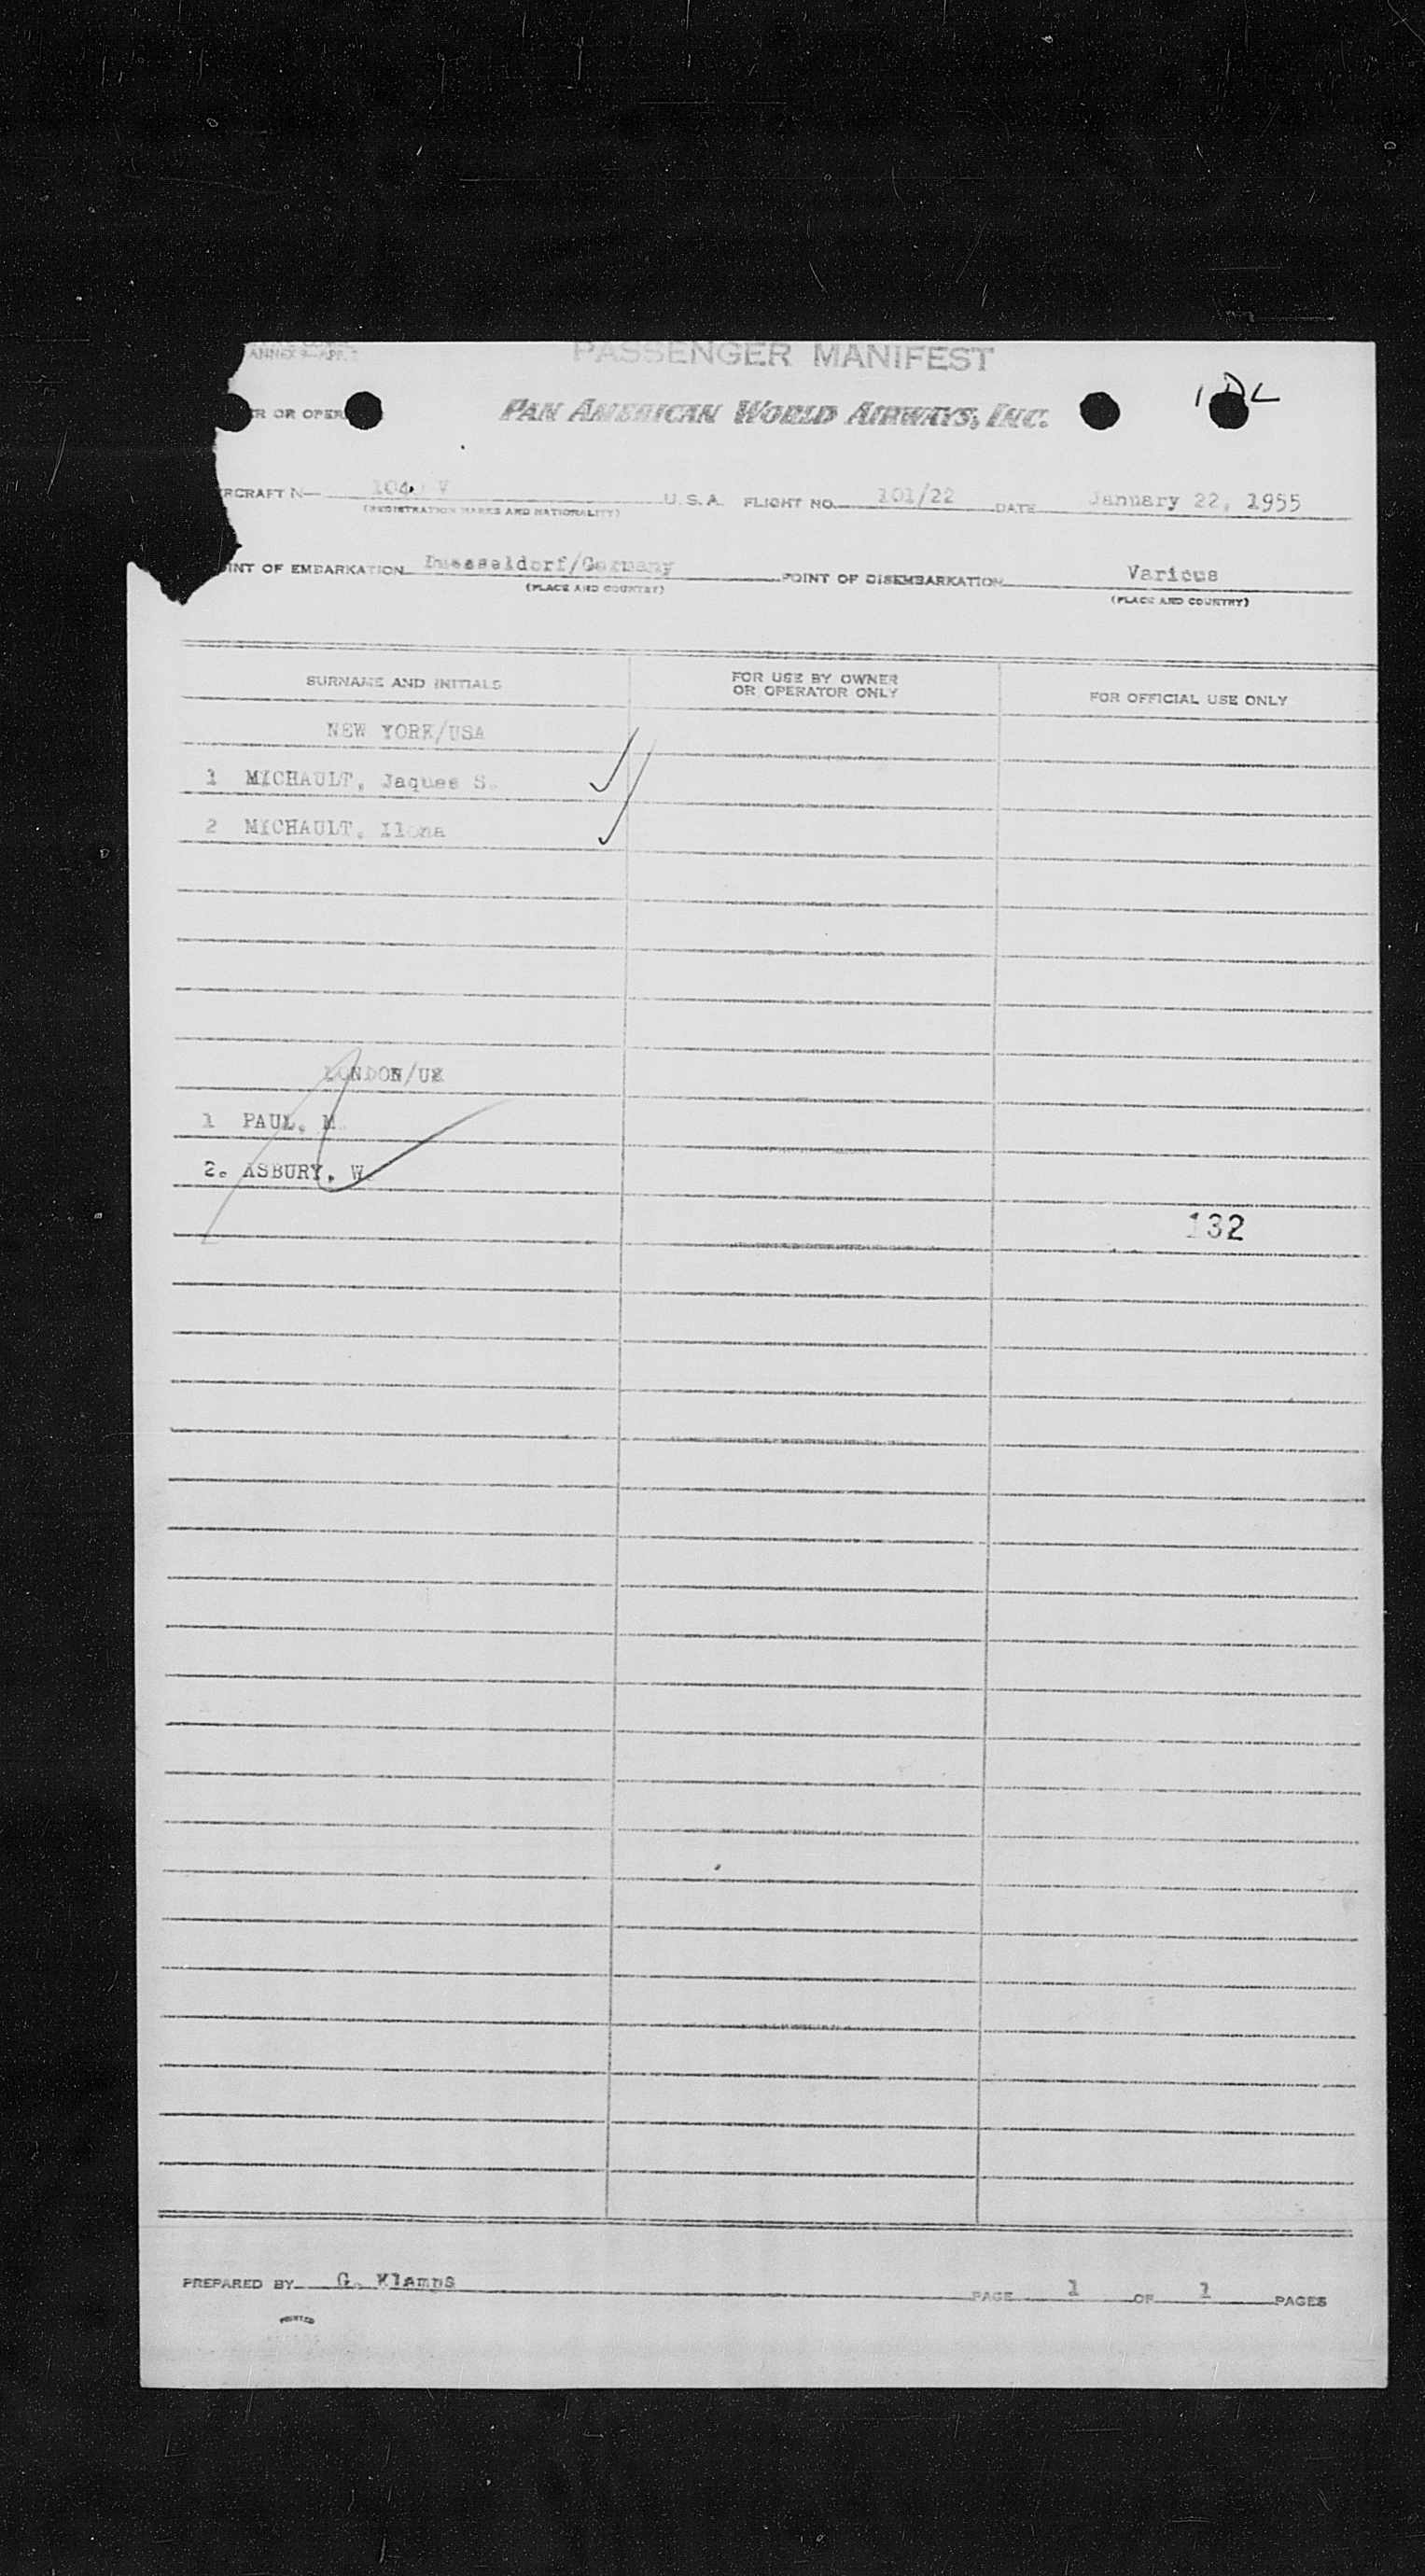 ANNEX 9—APP. 
PASSENGER MANIFEST
R OR OPER
PAN AMERICAN WORLD AIRWAYS, INC.
1 DL
RCRAFT N— V U.S.A. FLIGHT NO. 101/22 DATE January 22, 1955
(REGISTRATION MARKS AND NATIONALITY)
INT OF EMBARKATION Duesseldorf/Germany POINT OF DISEMBARKATION Various
(PLACE AND COUNTRY) (PLACE AND COUNTRY)
SURNAME AND INITIALS FOR USE BY OWNER OR OPERATOR ONLY FOR OFFICIAL USE ONLY
NEW YORK/USA
1 MICHAULT, Jaques S.
2 MICHAULT, Ilona
LONDON/UK
1 PAUL, M
2. ASBURY, W
132
PREPARED BY G. Klamps PAGE 1 OF 1 PAGES
PRINTED